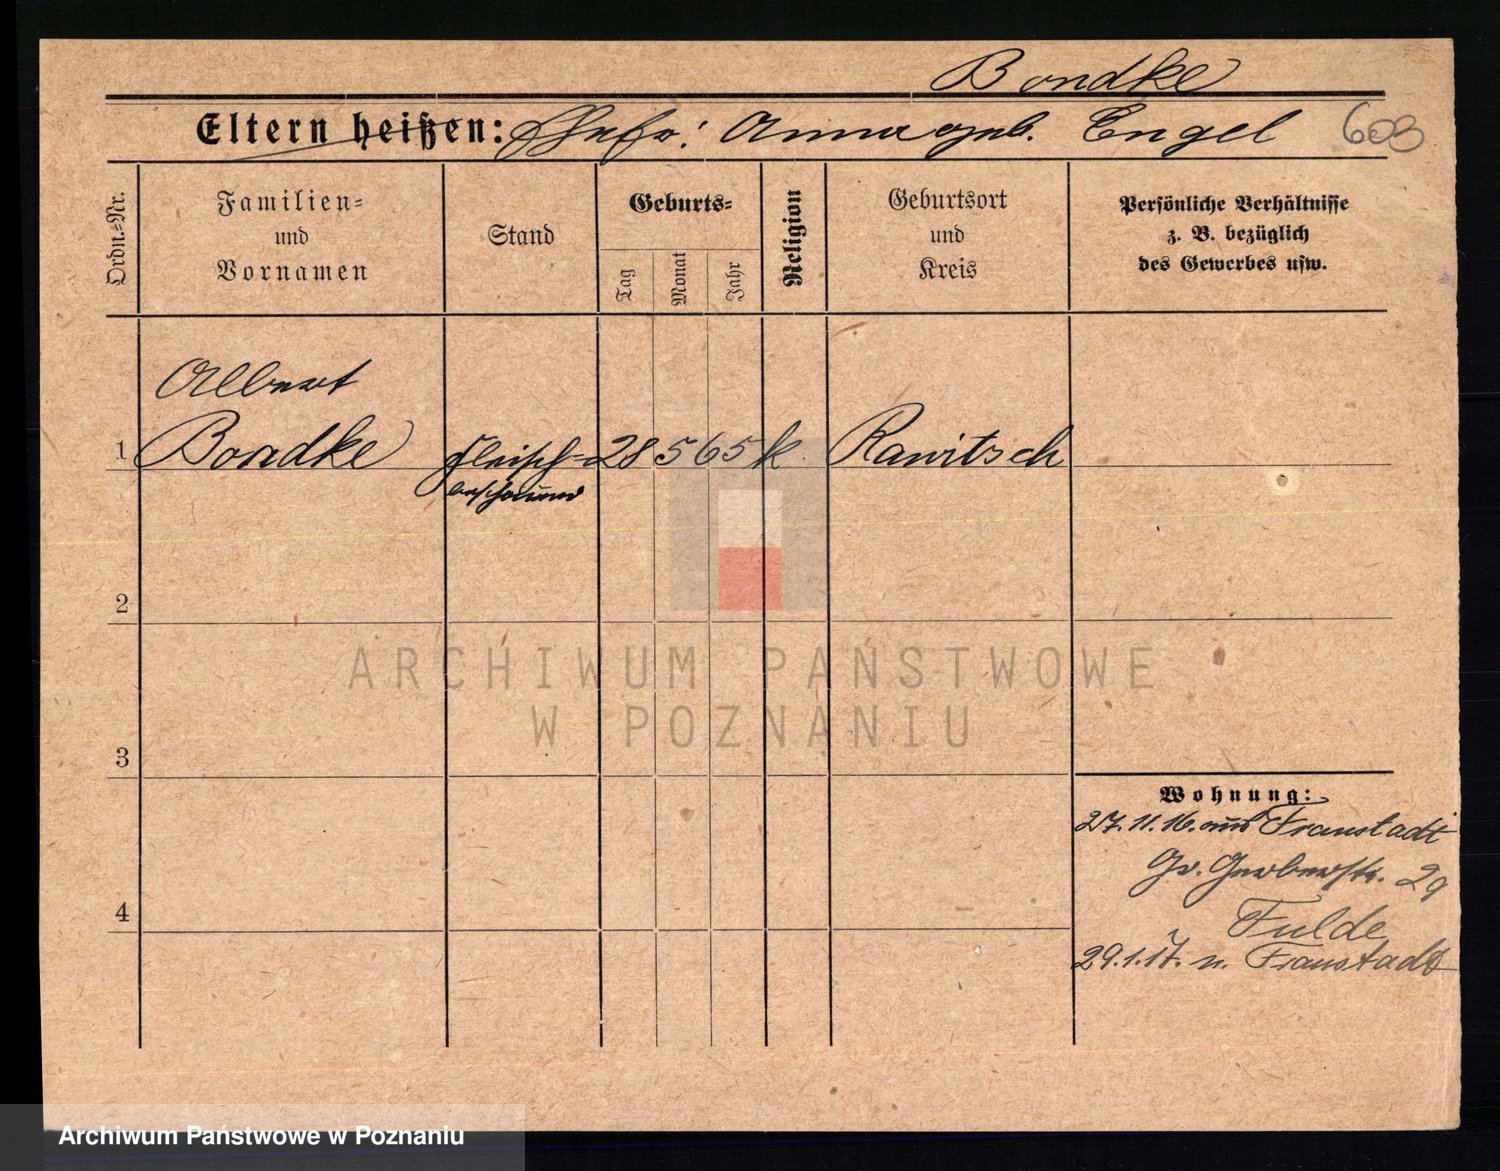 Bondke
Eltern heißen: Ehefr: Anna geb. Engel 603
Ordn.=Nr.
Familien=
und
Vornamen
Stand
Geburts=
Tag
Monat
Jahr
Religion
Geburtsort
und
Kreis
Persönliche Verhältnisse
z. B. bezüglich
des Gewerbes usw.
Albert
1 Bondke Fleisch= 28 5 65 k. Rawitsch
beschauer
2
3
4
Wohnung:
27.11.16. aus Fraustadt
Gr. Gerberstr. 29
Fulde
29.1.17. n. Fraustadt
ARCHIWUM PAŃSTWOWE
W POZNANIU
Archiwum Państwowe w Poznaniu